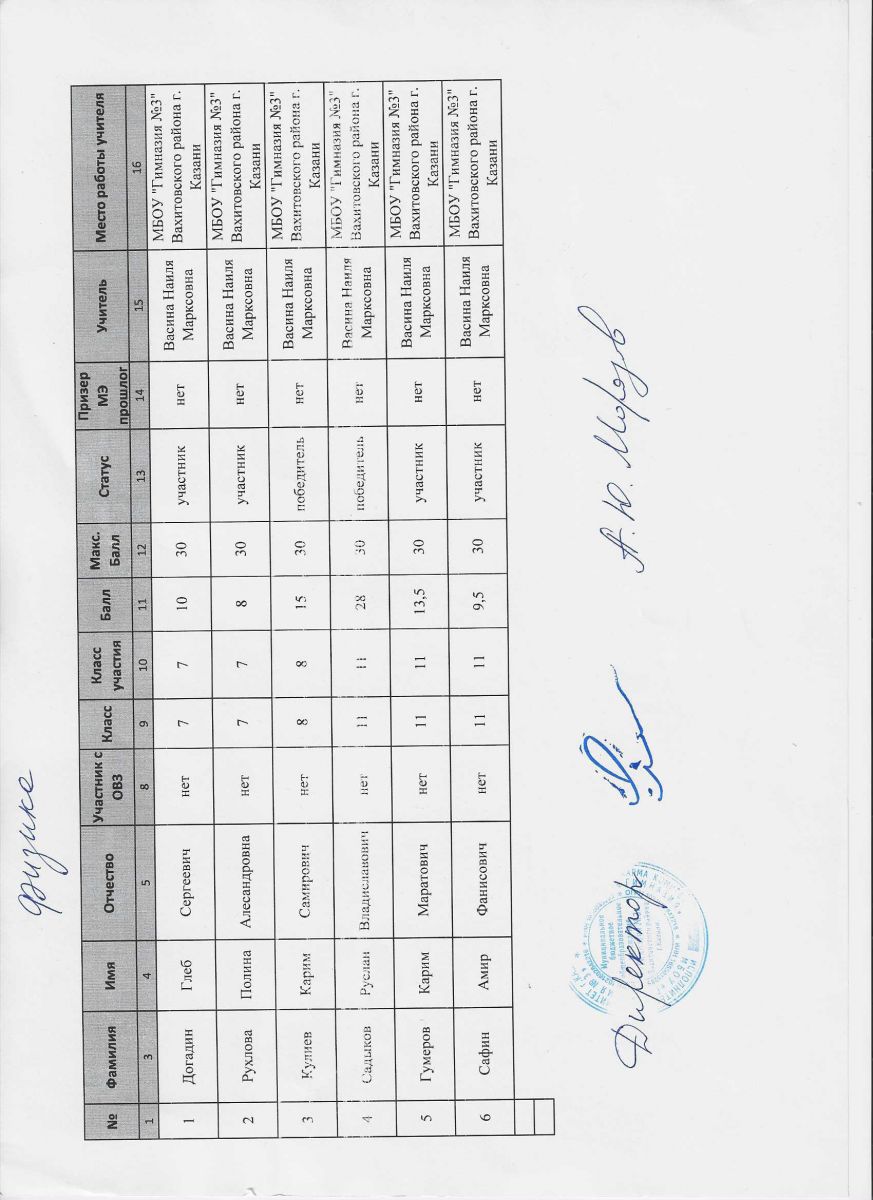 Физика
№ Фамилия Имя Отчество Участник с ОВЗ Класс Класс участия Балл Макс. Балл Статус Призер МЭ прошлог Учитель Место работы учителя
1 3 4 5 8 9 10 11 12 13 14 15 16
1 Догадин Глеб Сергеевич нет 7 7 10 30 участник нет Васина Наиля Марксовна МБОУ "Гимназия №3" Вахитовского района г. Казани
2 Рухлова Полина Алесандровна нет 7 7 8 30 участник нет Васина Наиля Марксовна МБОУ "Гимназия №3" Вахитовского района г. Казани
3 Кулиев Карим Самирович нет 8 8 15 30 победитель нет Васина Наиля Марксовна МБОУ "Гимназия №3" Вахитовского района г. Казани
4 Садыков Руслан Владиславович нет 11 11 28 30 победитель нет Васина Наиля Марксовна МБОУ "Гимназия №3" Вахитовского района г. Казани
5 Гумеров Карим Маратович нет 11 11 13,5 30 участник нет Васина Наиля Марксовна МБОУ "Гимназия №3" Вахитовского района г. Казани
6 Сафин Амир Фанисович нет 11 11 9,5 30 участник нет Васина Наиля Марксовна МБОУ "Гимназия №3" Вахитовского района г. Казани
Директор А. Ю. Морозов
Муниципальное
бюджетное
общеобразовательное